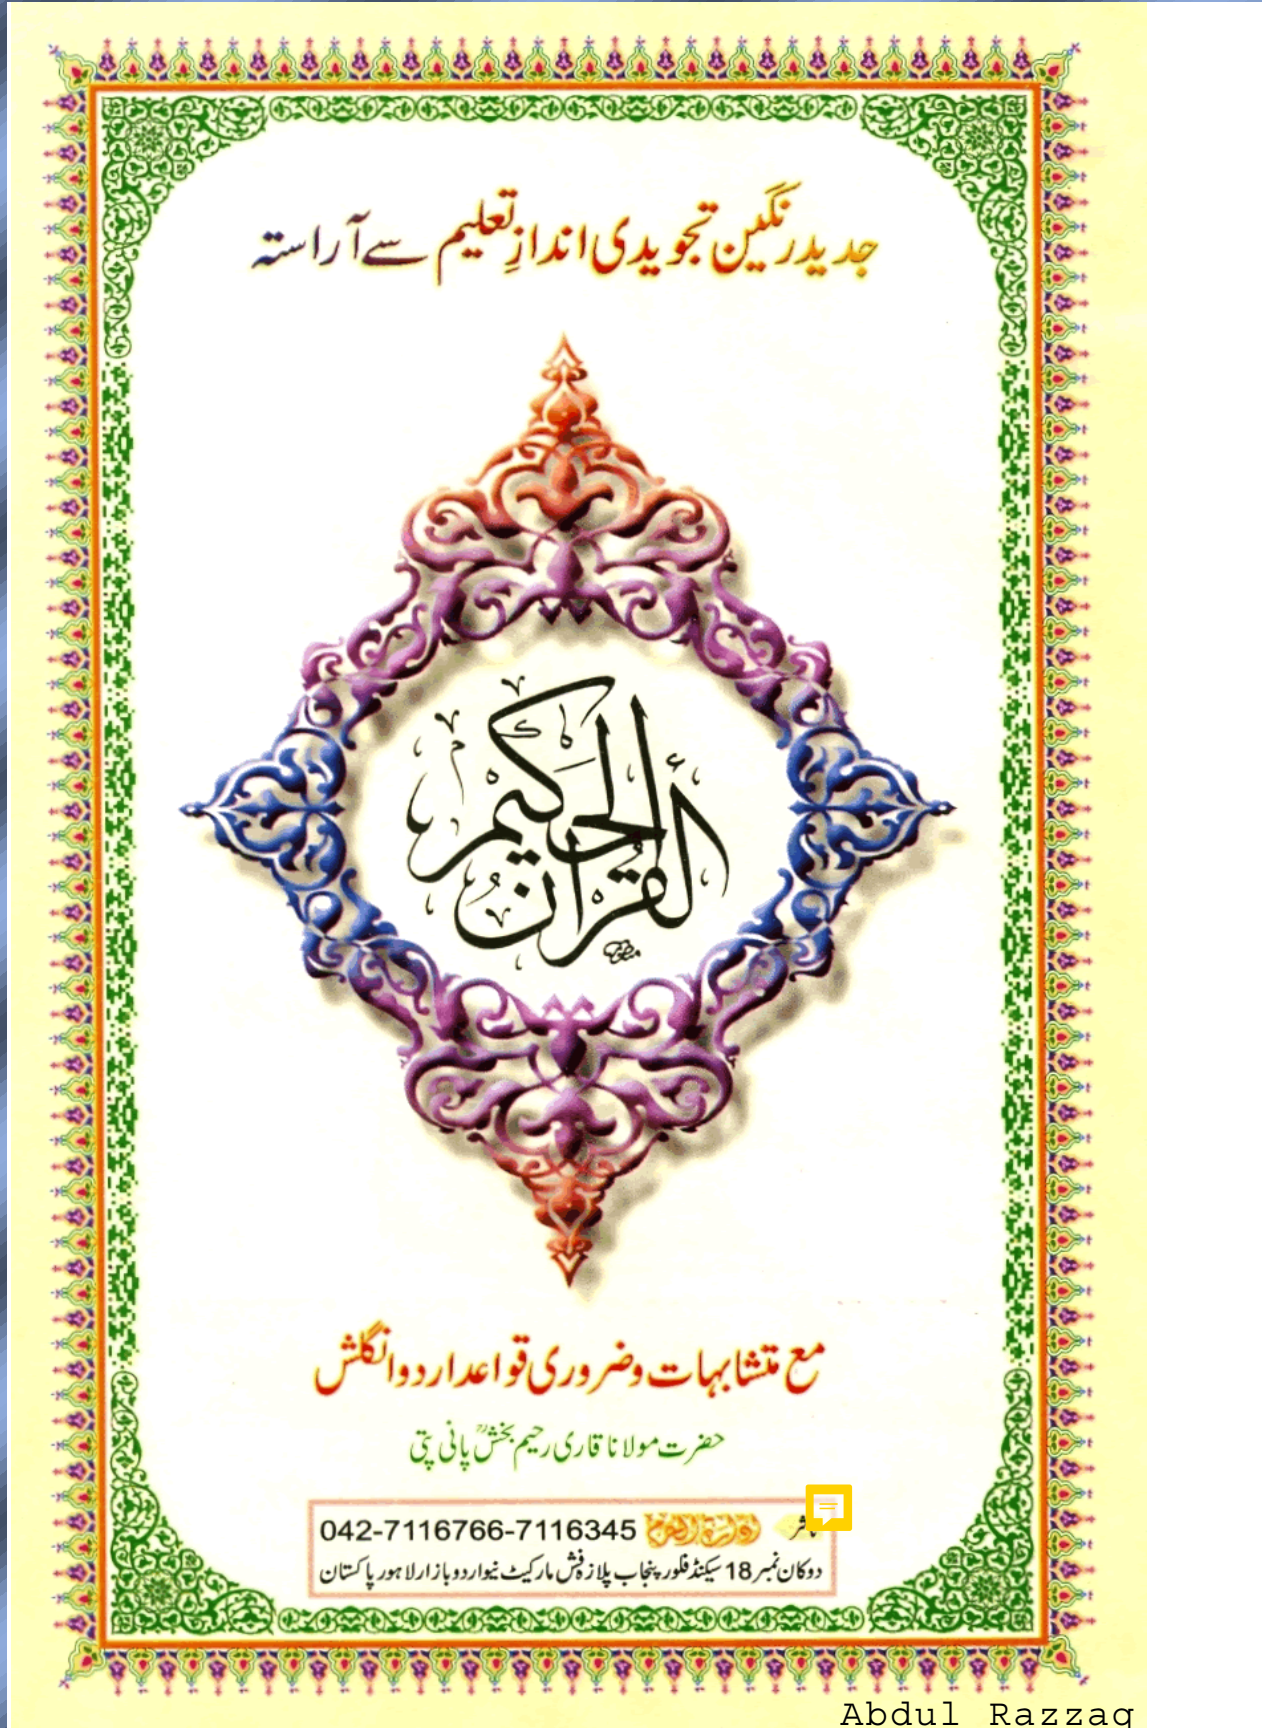 جدید رنگین تجویدی اندازِ تعلیم سے آراستہ
القرآن الحکیم
مع متشابہات و ضروری قواعد اردو انگلش
حضرت مولانا قاری رحیم بخشؒ پانی پتی
ناشر 042-7116766-7116345
دوکان نمبر 18 سیکنڈ فلور پنجاب پلازہ فش مارکیٹ نیو اردو بازار لاہور پاکستان
Abdul Razzaq